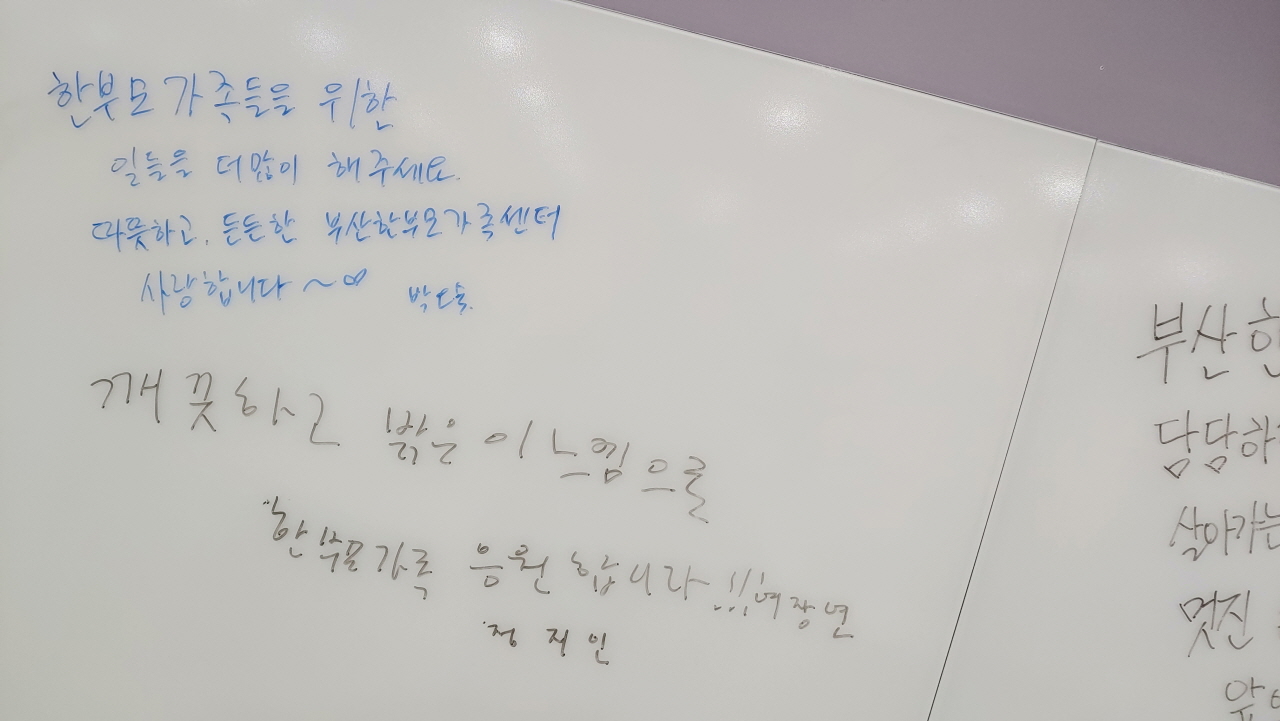 한부모가족들을 위한
일들을 더많이 해주세요.
따뜻하고, 든든한 부산한부모가족센터
사랑합니다 ~♡
깨끗하고 밝은 이 느낌으로
"한부모가족 응원합니다!!! 여장연
정지인
부산한
담담하
살아가는
멋진